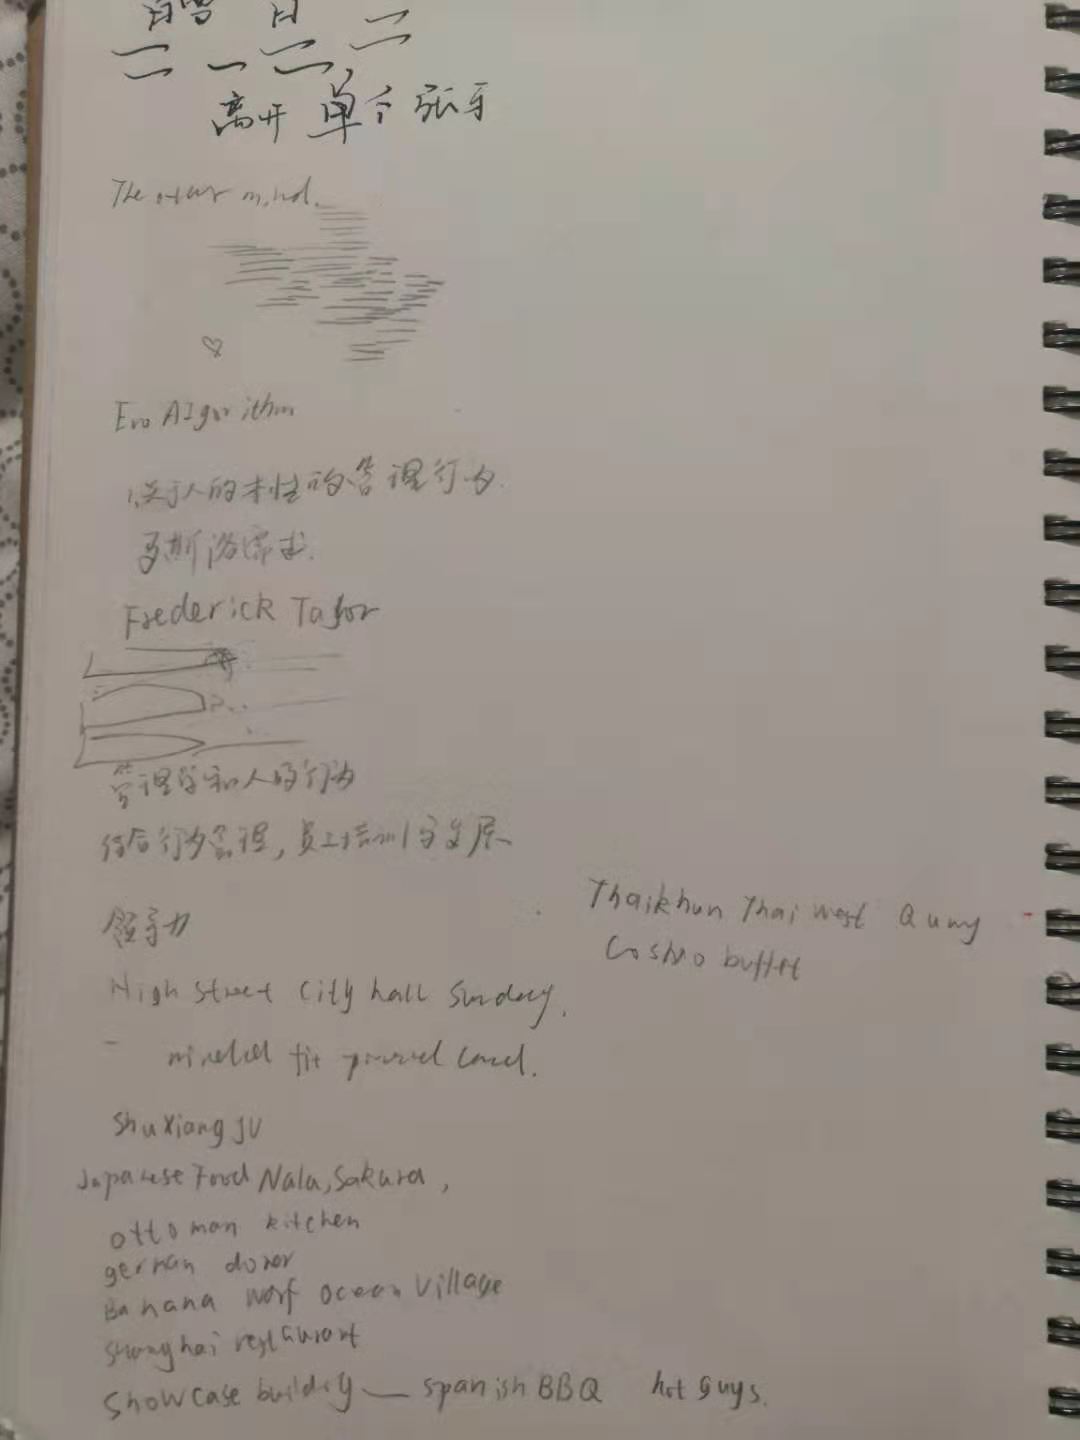 离开 单个 张牙
The other mind.
Evo AIgorithm
1.关于人的本性的管理行为.
马斯洛需求.
Frederick Taylor
管理学和人的行为
结合行为管理, 员工培训与发展
领导力
Thaikhun Thai West Quay
Cosmo buffet
High Street City hall Sunday.
ShuXiangJU
Japanese Food Nala, Sakura,
ottoman kitchen
german doner
Banana worf ocean Village
Shanghai restaurant
Showcase building — spanish BBQ hot guys.